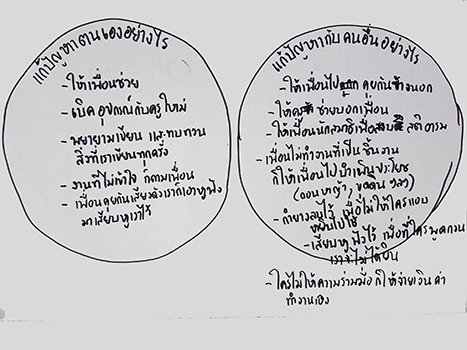 แก้ปัญหาตนเองอย่างไร
- ให้เพื่อนช่วย
- เบิกอุปกรณ์กับครูใหม่
- พยายามเขียน และทบทวน
สิ่งที่เราเขียนทุกครั้ง
- งานที่ไม่เข้าใจ ก็ถามเพื่อน
- เพื่อนคุยกันเสียงดังเราก็เอาหูฟัง
มาเสียบหูเราไว้
แก้ปัญหากับคนอื่นอย่างไร
- ให้เพื่อนไป คุยกันข้างนอก
- ให้ครู ช่วยบอกเพื่อน
- ให้เพื่อนนั่งสมาธิเพื่อสงบ สติอารม
- เพื่อนไม่ทำงานที่เป็นชิ้นงาน
ก็ให้เพื่อนไปบำเพ็ญประโยช
(ถอนหญ้า, ขุดดิน ฯลฯ)
- ทำยางลบไว้ เพื่อไม่ให้ใครแอบ
หยิบไปใช้
- เสียบหูฟังไว้ เพื่อที่ใครพูดกวน
เราจะไม่ได้ยิน
- ใครไม่ให้ความร่วมมือ ก็ให้จ่ายเงินค่า
ทำงานเอง